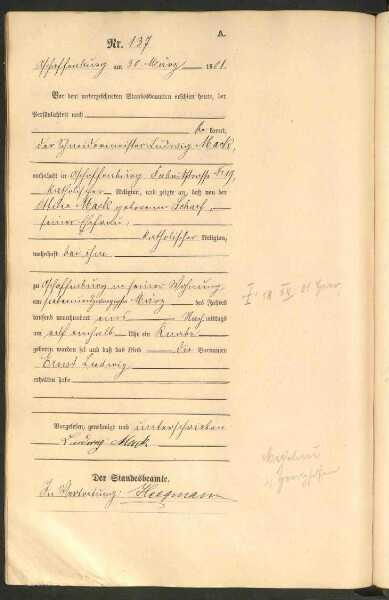 A.
Nr. 137
Aschaffenburg am 30. März 1901.
Vor dem unterzeichneten Standesbeamten erschien heute, der
Persönlichkeit nach
be kannt,
der Schneidermeister Ludwig Mack,
wohnhaft in Aschaffenburg, Fabrikstrasse No 19,
katholischer Religion, und zeigte an, daß von der
Ottilie Mack geborenen Scharf,
seiner Ehefrau,
katholischer Religion,
wohnhaft bei ihm
zu Aschaffenburg in seiner Wohnung,
am siebenundzwanzigsten März des Jahres
tausend neunhundert eins Nachmittags
um elf einhalb Uhr ein Knabe
geboren worden sei und daß das Kind die Vornamen
Ernst Ludwig
erhalten habe
Vorgelesen, genehmigt und unterschrieben
Ludwig Mack
Der Standesbeamte.
In Vertretung: Heegmann
18 XII. 01